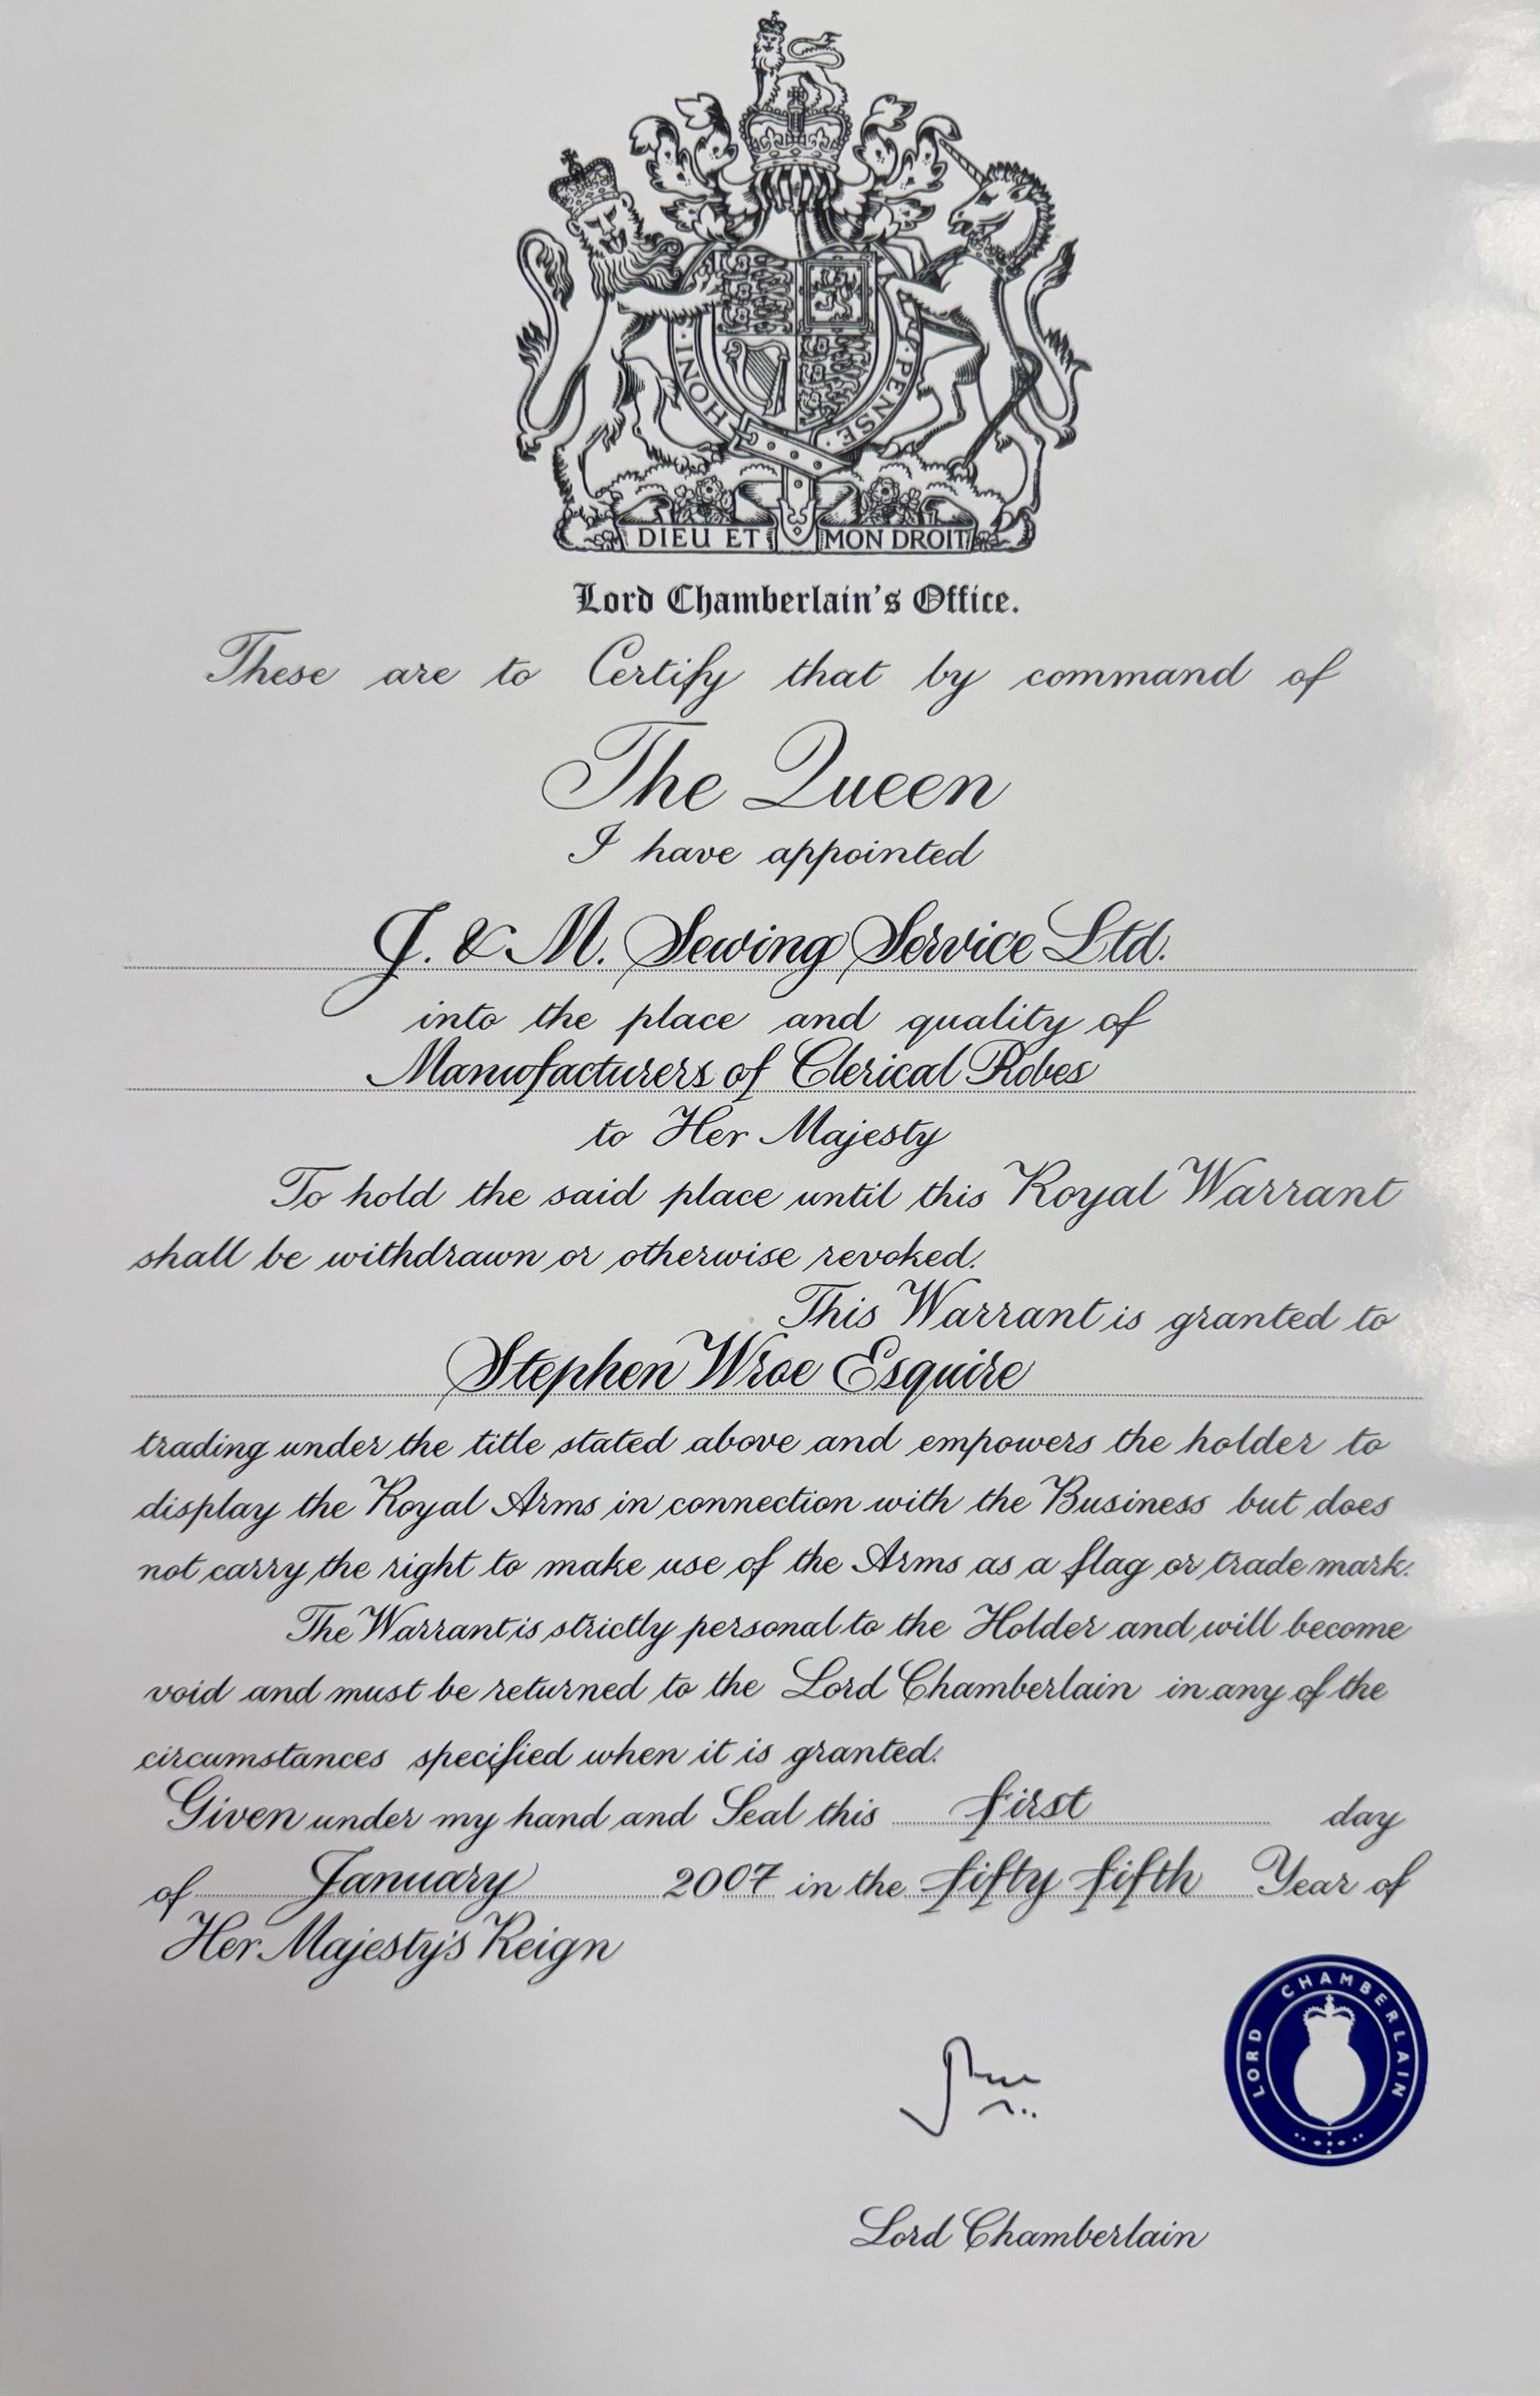 HONI · PENSE ·
DIEU ET MON DROIT
Lord Chamberlain's Office.
These are to Certify that by command of
The Queen
I have appointed
J. & M. Sewing Service Ltd.
into the place and quality of
Manufacturers of Clerical Robes
to Her Majesty
To hold the said place until this Royal Warrant
shall be withdrawn or otherwise revoked.
This Warrant is granted to
Stephen Wroe Esquire
trading under the title stated above and empowers the holder to
display the Royal Arms in connection with the Business but does
not carry the right to make use of the Arms as a flag or trade mark.
The Warrant is strictly personal to the Holder and will become
void and must be returned to the Lord Chamberlain in any of the
circumstances specified when it is granted.
Given under my hand and Seal this first day
of January 2007 in the fifty fifth Year of
Her Majesty's Reign
LORD CHAMBERLAIN
Lord Chamberlain